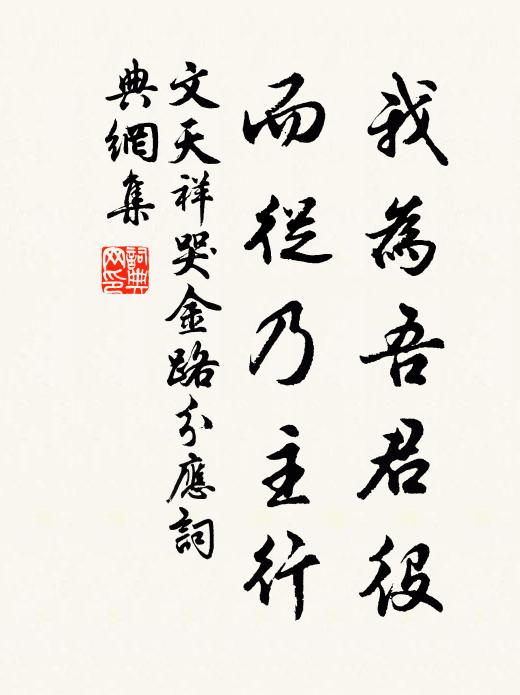 我為吾君役
而從乃主行
文天祥哭金路分應詞
典網集
詞典
网印